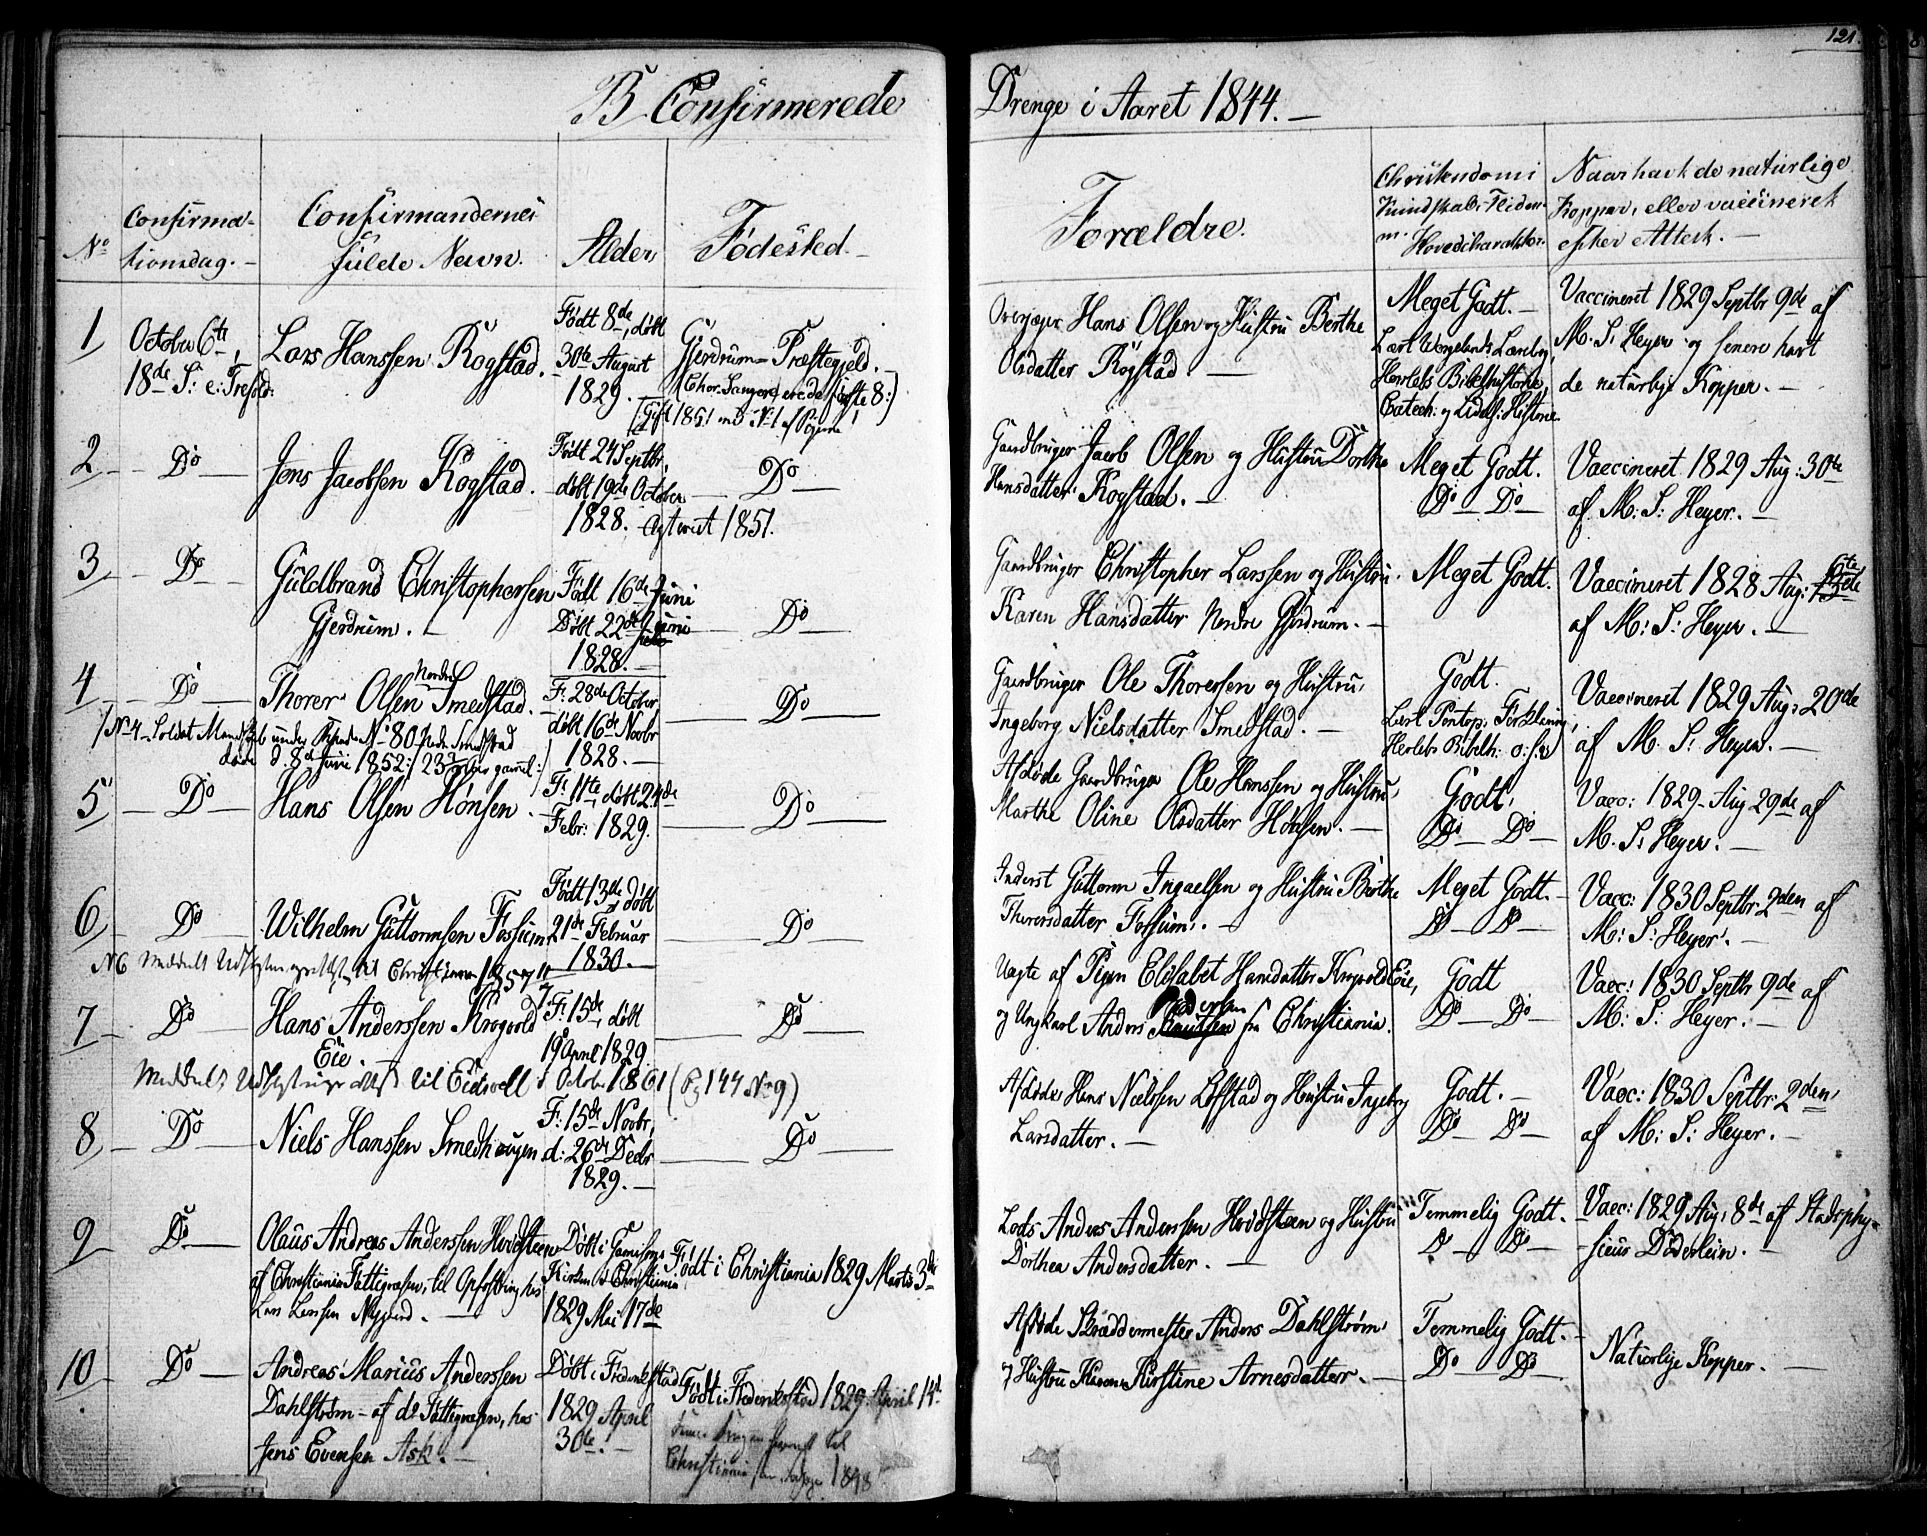 121.
B Confirmerede
Drenge i Aaret 1844. —
No
Confirma-
tionsdag. —
Confirmandernes
fulde Navn.
Alder,
Fødested. —
Forældre.
Christendoms
Kundskab, Fliden
m.
Hovedcharakter.
Naar havt de naturlige
Kopper, eller vaccineret
efter Attest. —
1
October 6te,
18de S: e: Trefold:
Lars Hanssen Rogstad.
Født 8de, døbt
30te August
1829.
Gjerdrum Præstegjeld. —
(Chor Sanger
(Gift 1851
Hans Olsen og Hustru Berthe
Olsdatter Rogstad. —
Meget Godt. —
Lært Wergelands Lærebog,
Herslebs Bibelhistorie,
Catech: og
Vaccineret 1829 Septbr 9de af
M. S: Heyer og senere havt
de naturlige Kopper. —
2
Do
Jens Jacobsen Rogstad.
Født 24 Septbr,
døbt 19de October
1828.
Do
1851.
Gaardbruger Jacob Olsen og Hustru Dorthe
Hansdatter Rogstad. —
Meget Godt.
Do — Do —
Vaccineret 1829 Aug: 30te
af M: S: Heyer. —
3
Do
Guldbrand Christophersen
Gjerdrum. —
Født 16de Juni
Døbt 22de Juni
1828. —
Do
Gaardbruger Christopher Larssen og Hustru
Karen Hansdatter Nordre Gjerdrum. —
Meget Godt.
Vaccineret 1828 Aug: 6te
af M: S: Heyer. —
4
Do
Thorer Olsen Nordre Smedstad.
F: 28de October
døbt 16de Novbr
1828. —
Do
No 4 Soldat
No 80
døde d. 8de Juni 1852: 23 Aar gamel:
Gaardbruger Ole Thoressen og Hustru
Ingeborg Nielsdatter Smedstad. —
Godt.
Lært Pontop: Forklaring,
Herslebs Bibelh: o: s: v:
Vaccineret 1829 Aug: 20de
af M. S: Heyer. —
5
Do
Hans Olsen Hønsen. —
F: 11te, døbt 24de
Febr: 1829.
Do
Afdøde Gaardbruger Ole Hanssen og Hustru
Marthe Oline Olsdatter Hønsen. —
Godt,
Do — Do —
Vacc: 1829 Aug 29de af
M. S: Heyer. —
6
Do
Wilhelm Guttormsen Fossum
Født 13de, døbt
21de Februar
1830. —
Do
N6 Meddelt til Christiania 1857
Inderst Guttorm Ingaelsen og Hustru Berthe
Thoresdatter Fossum. —
Meget Godt. —
Do — Do —
Vacc: 1830 Septbr: 2den af
M: S: Heyer. —
7
Do
Hans Anderssen Krogvold
Eie.
F: 15de, døbt
19 April 1829
Do
Meddelt til Eidsvoll October 1861 (Pg 144 No 9)
Uægte af Pigen Elisabet Hansdatter Krogvold Eie,
og Ungkarl Anders fra Christiania.
Godt
Do — Do —
Vacc: 1830 Septbr 9de af
M: S: Heyer. —
8
Do
Niels Hanssen Smedhougen
F: 15de Novbr,
d: 26de Decbr
1829. —
Do
Afdøde Hans Nielssen Løfstad og Hustru Ingeborg
Larsdatter. —
Godt. —
Do — Do —
Vacc: 1830 Septbr: 2den
af M: S: Heyer. —
9
Do
Olaus Andreas Anderssen Hvidsteen
af Christiania Fattigvæsen, til Opfostring hos
Lars Larssen Nygaard. —
Døbt i Garnisons
Kirken i Christiania
1829 Mai 17de
Født i Christiania 1829 Marts 3de
Lods Anders Anderssen Hvidsteen og Hustru
Dorthea Andersdatter. —
Temmelig Godt. —
Do — Do —
Vacc: 1829 Aug: 8de af Stadsphy-
sicus Døderlein. —
10
Do
Andreas Marius Anderssen
Dahlstrøm — af do Fattigvæsen, hos
Jens Evensen Ask. —
Døbt i Frederikstad
1829 April
30te. —
Født i Frederikstad 1829 April 14de
Christiania 1848
Afdøde Bræddermester Anders Dahlstrøm
og Hustru Karen Kirstine Arnesdatter. —
Temmelig Godt. —
Do — Do
Naturlige Kopper. —